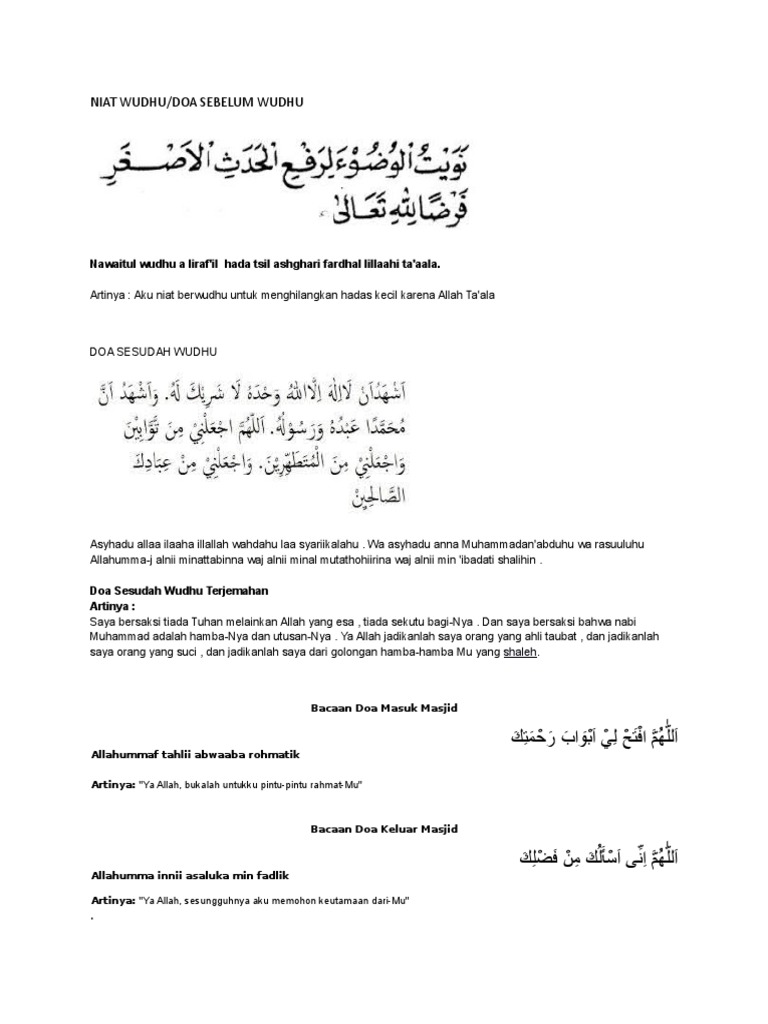 NIAT WUDHU/DOA SEBELUM WUDHU
نَوَيْتُ الْوُضُوْءَ لِرَفْعِ الْحَدَثِ الْاَصْغَرِ
فَرْضًا لِلّٰهِ تَعَالٰى
Nawaitul wudhu a liraf'il hada tsil ashghari fardhal lillaahi ta'aala.
Artinya : Aku niat berwudhu untuk menghilangkan hadas kecil karena Allah Ta'ala
DOA SESUDAH WUDHU
اَشْهَدُ اَنْ لَااِلٰهَ اِلَّااللهُ وَحْدَهُ لَا شَرِيْكَ لَهُ. وَاَشْهَدُ اَنَّ
مُحَمَّدًا عَبْدُهُ وَرَسُوْلُهُ. اَللّٰهُمَّ اجْعَلْنِيْ مِنَ تَّوَّابِيْنَ
وَاجْعَلْنِيْ مِنَ الْمُتَطَهِّرِيْنَ. وَاجْعَلْنِيْ مِنْ عِبَادِكَ
الصَّالِحِيْنَ
Asyhadu allaa ilaaha illallah wahdahu laa syariikalahu . Wa asyhadu anna Muhammadan'abduhu wa rasuuluhu
Allahumma-j alnii minattabinna waj alnii minal mutathohiirina waj alnii min 'ibadati shalihin .
Doa Sesudah Wudhu Terjemahan
Artinya :
Saya bersaksi tiada Tuhan melainkan Allah yang esa , tiada sekutu bagi-Nya . Dan saya bersaksi bahwa nabi
Muhammad adalah hamba-Nya dan utusan-Nya . Ya Allah jadikanlah saya orang yang ahli taubat , dan jadikanlah
saya orang yang suci , dan jadikanlah saya dari golongan hamba-hamba Mu yang shaleh.
Bacaan Doa Masuk Masjid
اَللّٰهُمَّ افْتَحْ لِيْ اَبْوَابَ رَحْمَتِكَ
Allahummaf tahlii abwaaba rohmatik
Artinya: "Ya Allah, bukalah untukku pintu-pintu rahmat-Mu"
Bacaan Doa Keluar Masjid
اَللّٰهُمَّ اِنِّى اَسْأَلُكَ مِنْ فَضْلِكَ
Allahumma innii asaluka min fadlik
Artinya: "Ya Allah, sesungguhnya aku memohon keutamaan dari-Mu"
.